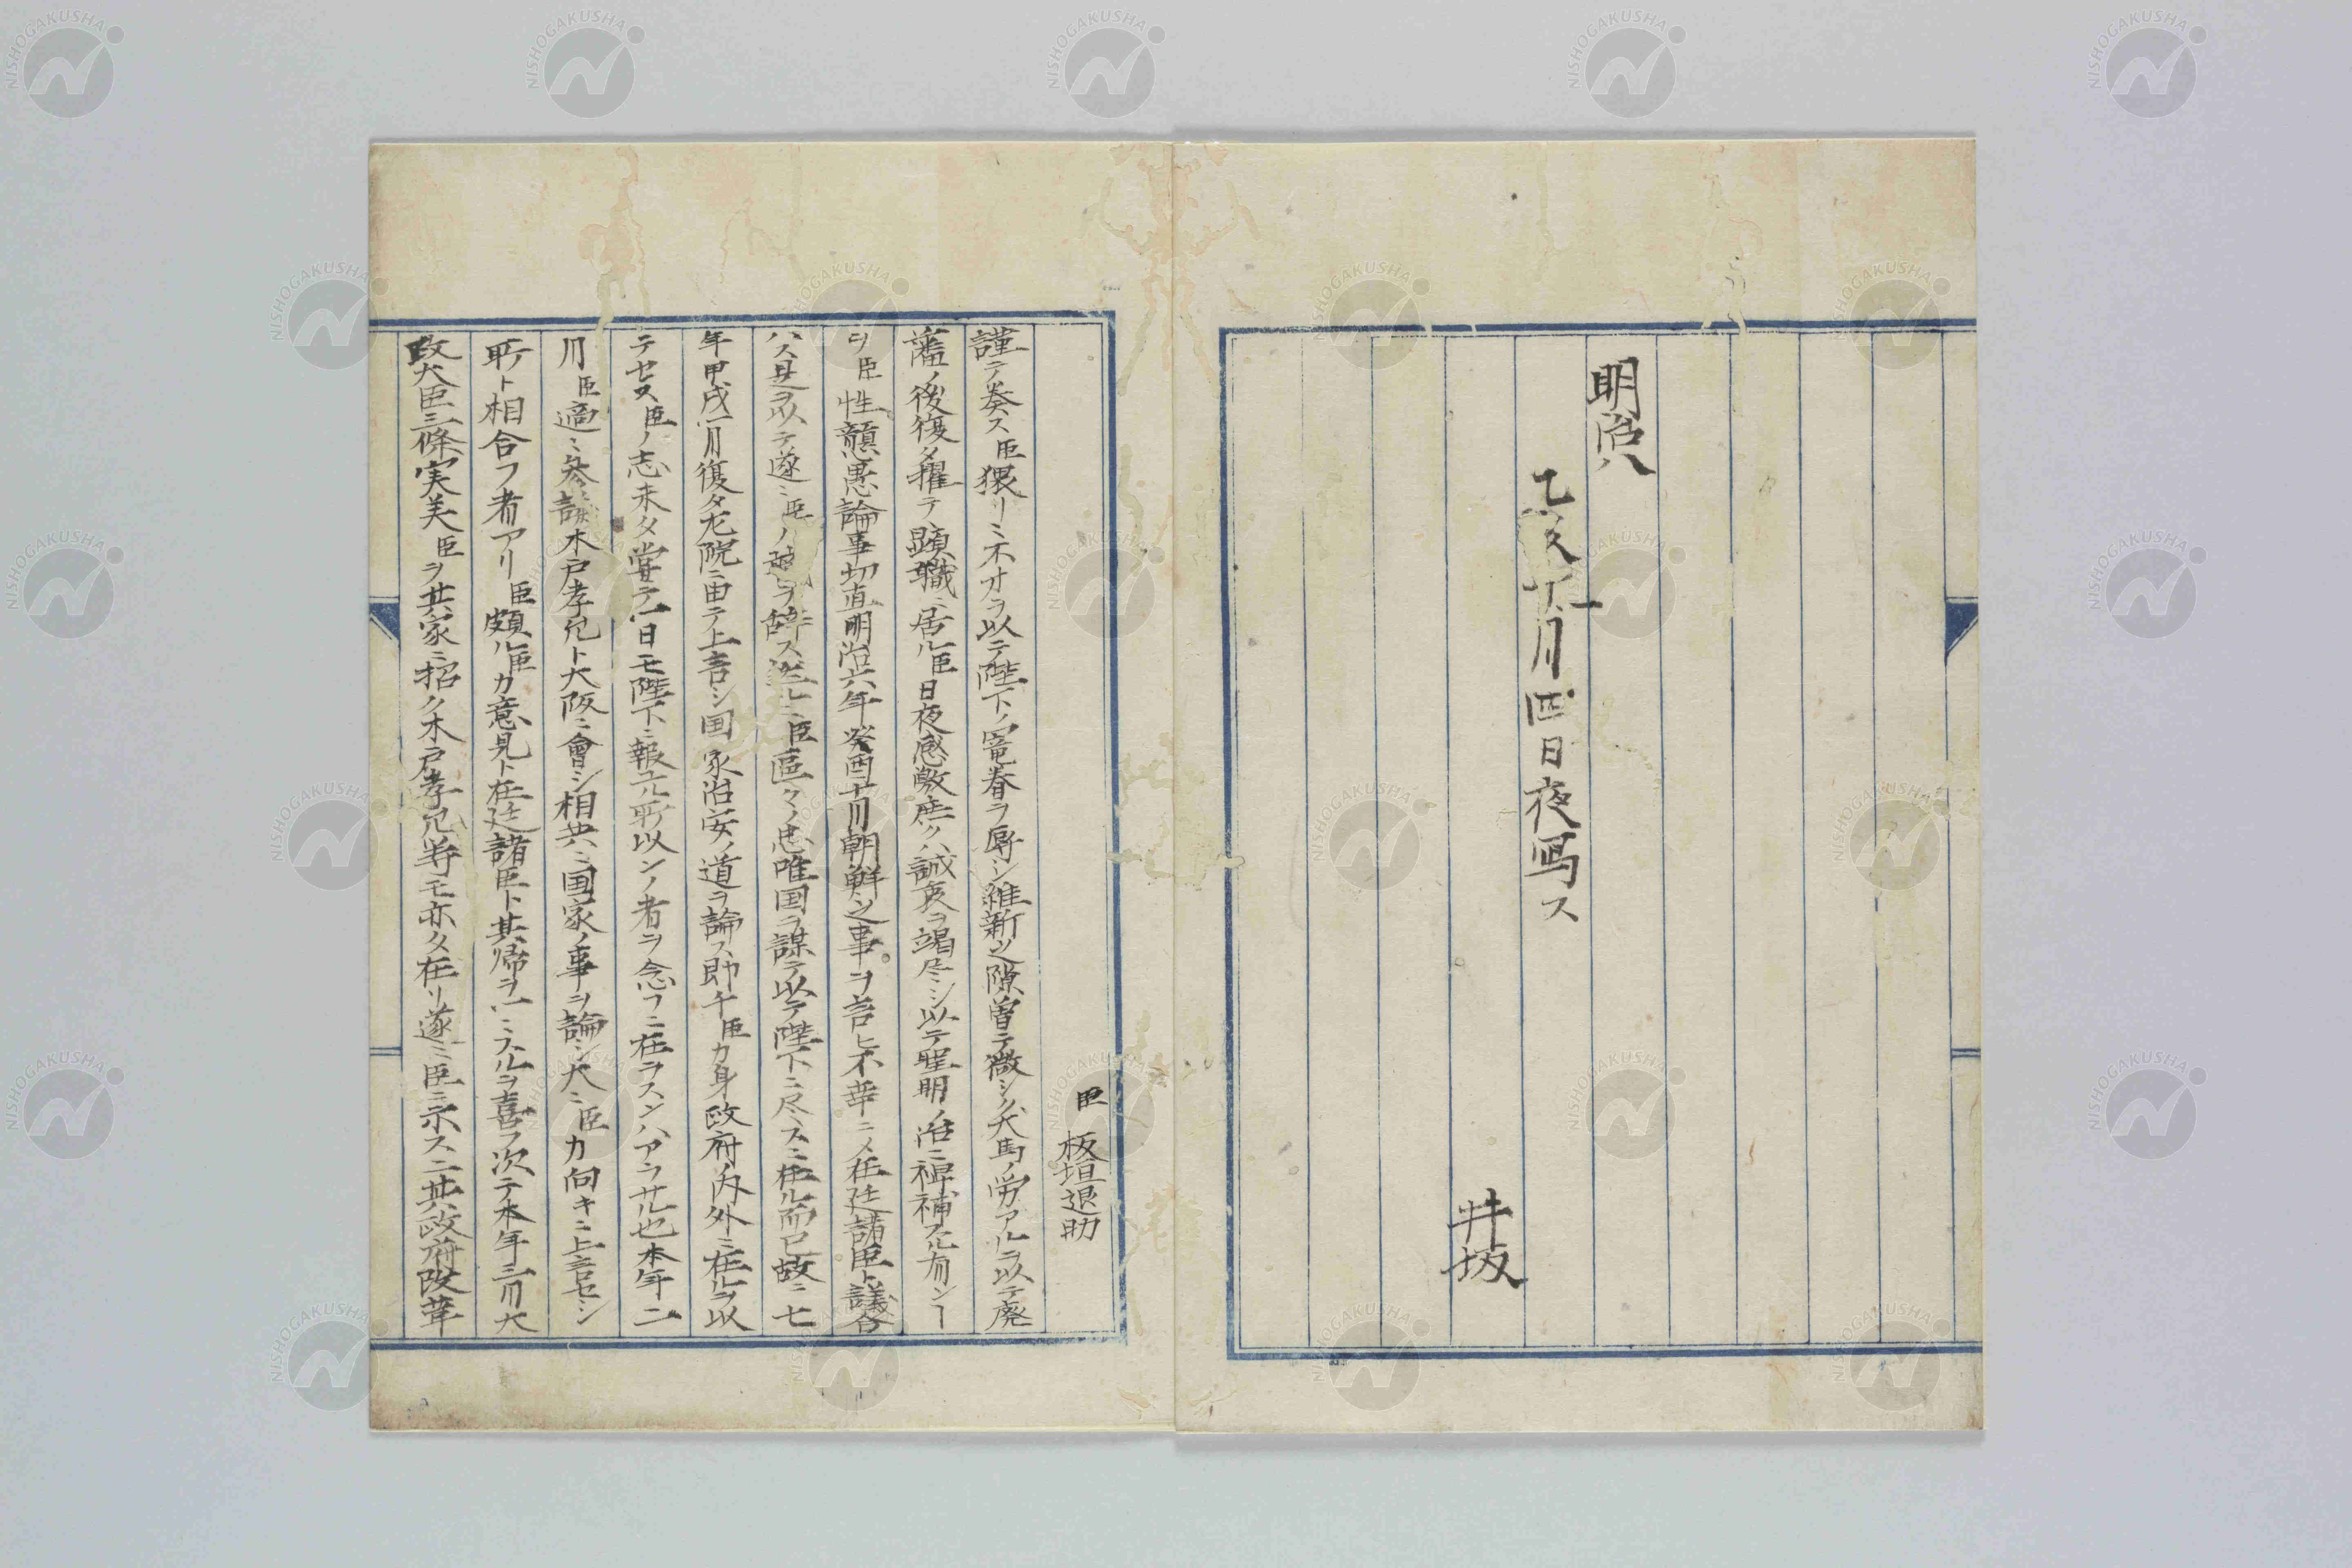 明治八
乙亥十一月四日夜写ス
井坂
臣 板垣退助
謹テ奏ス臣猥リニ不才ヲ以テ陛下ノ寵眷ヲ辱シ維新之際曽テ微シク犬馬ノ労アルヲ以テ廃
藩ノ後復タ擢テ顕職ニ居ル臣日夜感激庶クハ誠衷ヲ竭尽シ以テ聖明ノ治ニ裨補スル有ンヿ
ヲ臣性顓愚論事切直明治六年癸酉十月朝鮮之事ヲ言ヒ不幸ニメ在廷諸臣ト議合
ハス是ヲ以テ遂ニ臣ノ職ヲ辞ス然ルニ臣區々ノ忠唯国ヲ謀テ以テ陛下ニ尽スニ在ル而已故ニ七
年甲戌一月復タ左院ニ由テ上言シ国家治安ノ道ヲ論ス即チ臣カ身政府ノ内外ニ在ルヲ以
テセス臣ノ志未タ嘗テ一日モ陛下ニ報ユル所以ンノ者ヲ念フニ在ラスンハアラサル也本年二
月臣適ニ参議木戸孝允ト大阪ニ會シ相共ニ国家ノ事ヲ論シ大ニ臣カ向キニ上言セシ
所ト相合フ者アリ臣頗ル臣カ意見ト在廷諸臣ト其帰ヲ一ニスルヲ喜フ次テ本年三月大
政大臣三條実美臣ヲ其家ニ招ク木戸孝允等モ亦タ在リ遂ニ臣ニ示スニ其政府改革
NISHOGAKUSHA